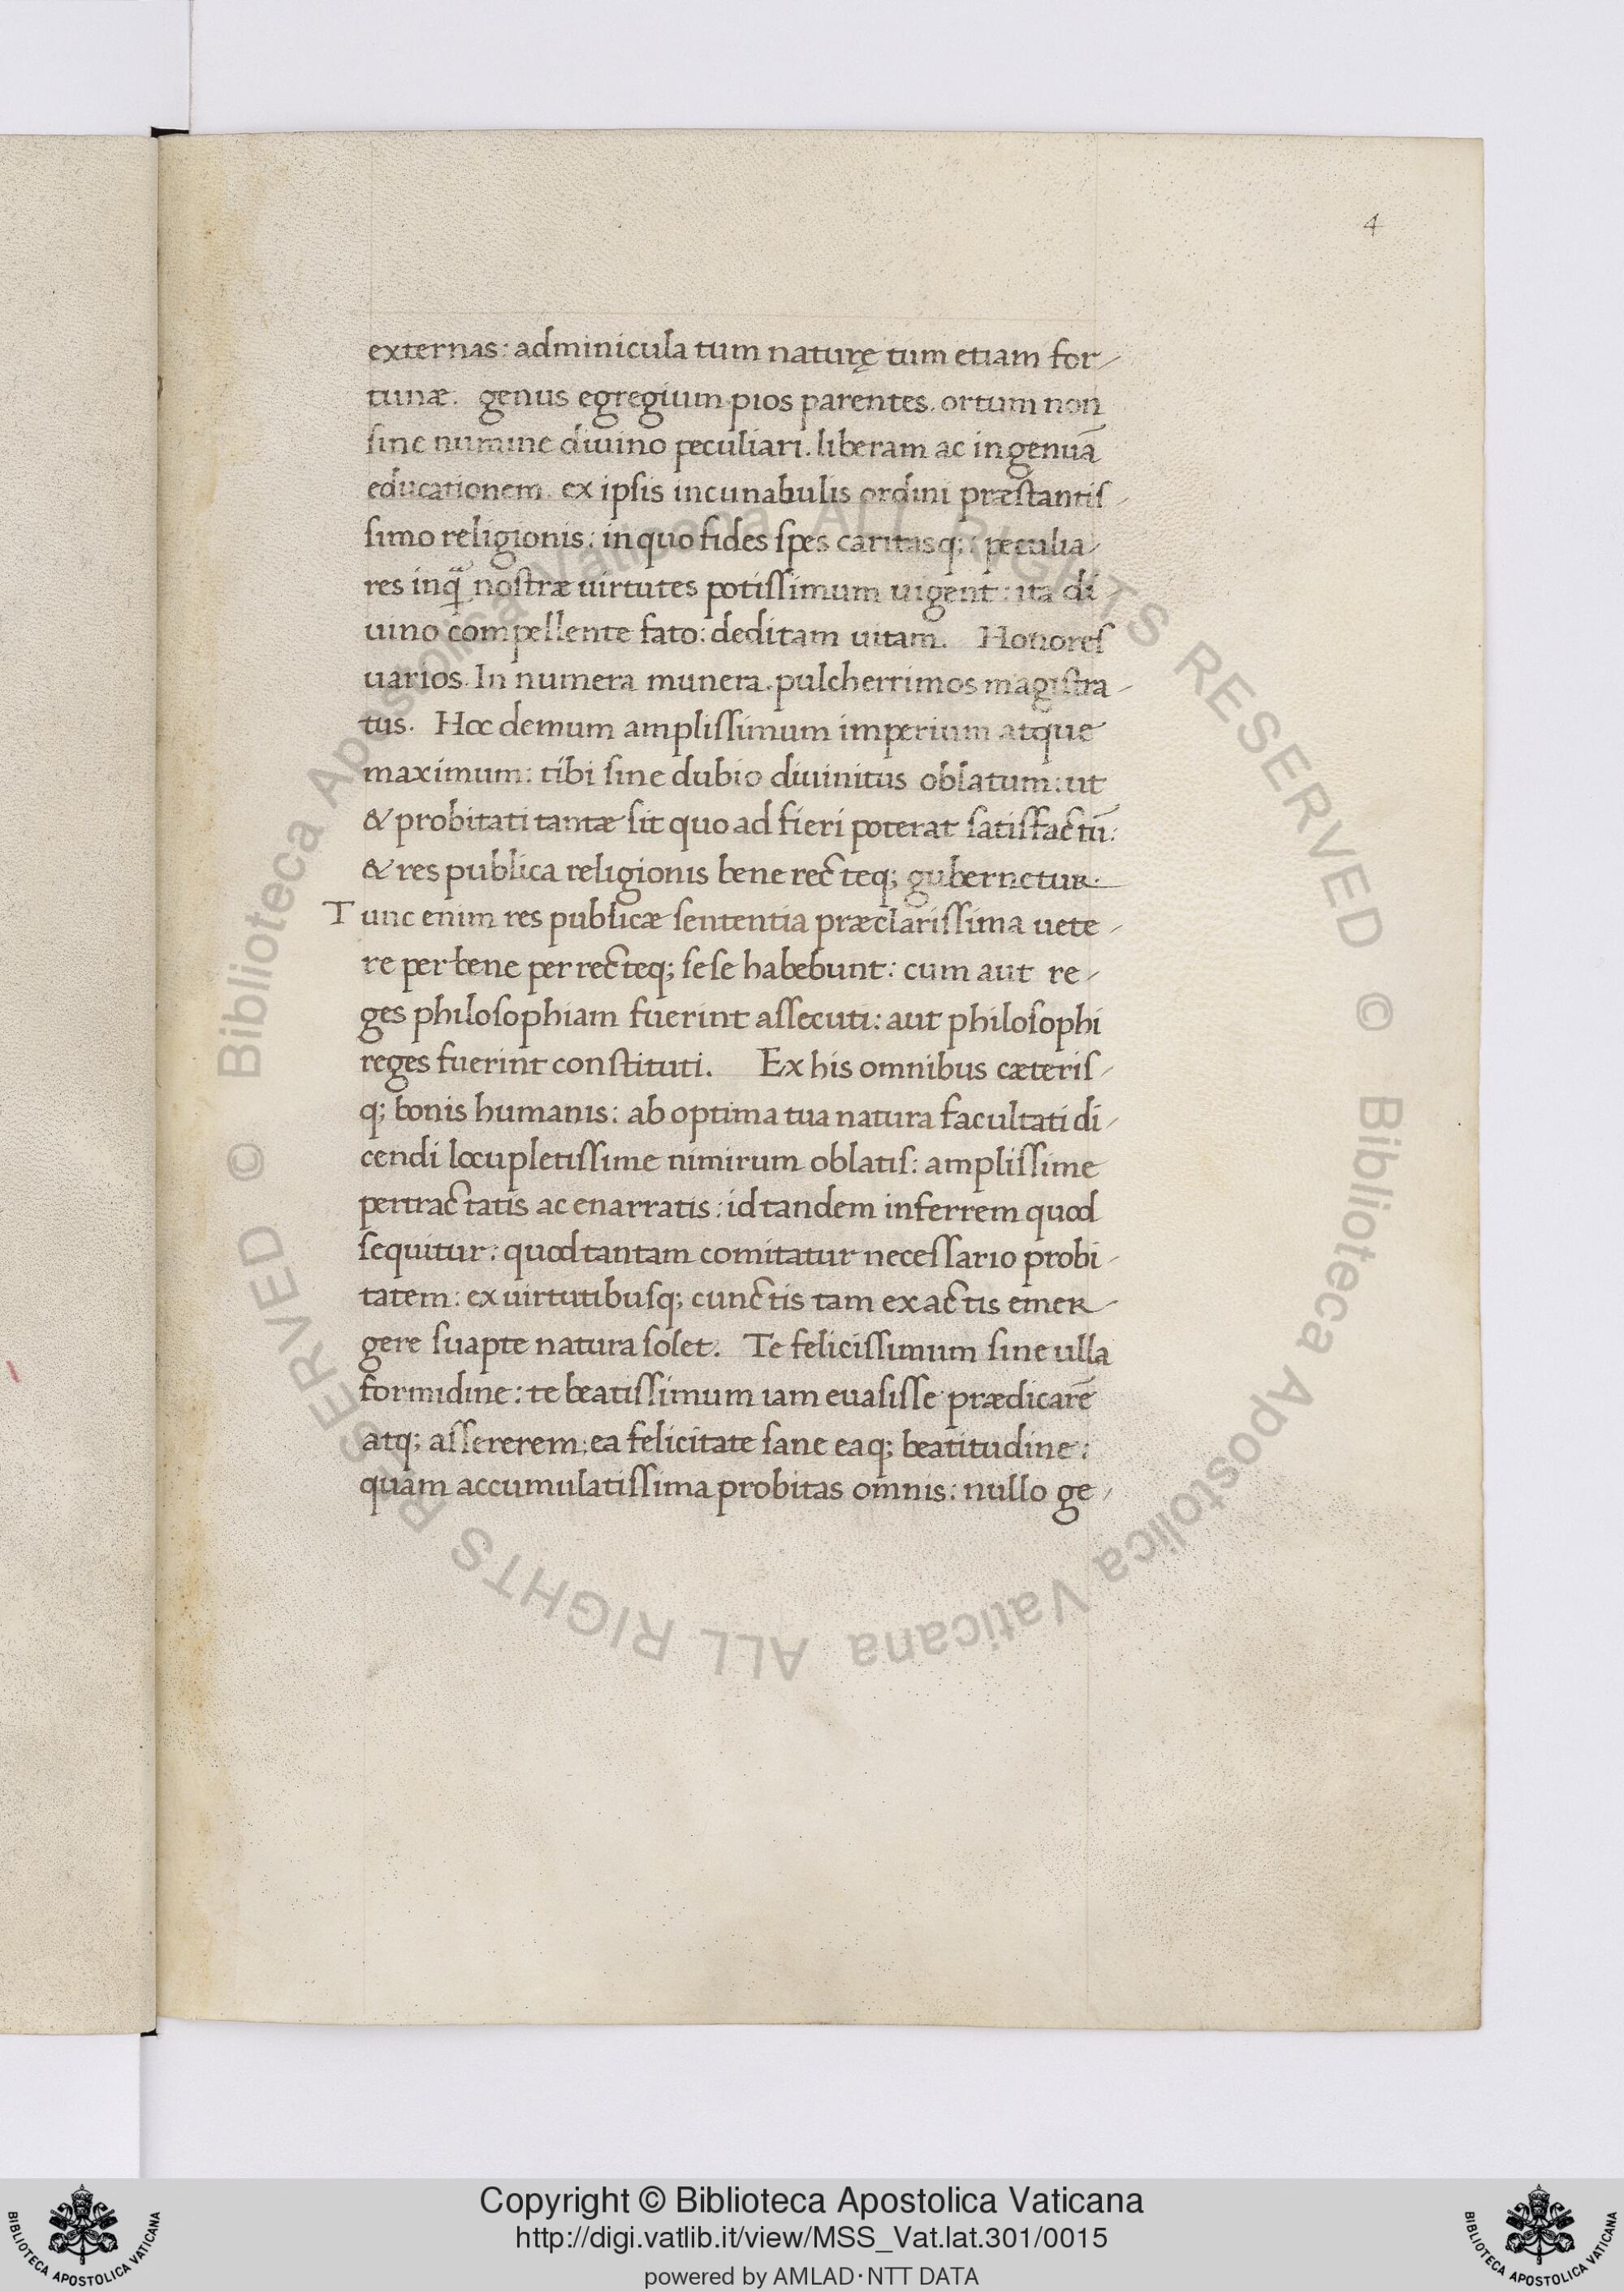 4
externas: adminicula tum naturę tum etiam for-
tunæ. genus egregium pios parentes. ortum non
sine numine diuino peculiari. liberam ac ingenuā
educationem. ex ipsis incunabulis ordini præstantis-
simo religionis: in quo fides spes caritasq;: peculia-
res inq̃ nostræ uirtutes potissimum uigent: ita di
uino compellente fato: deditam uitam. Honores
uarios. In numera munera. pulcherrimos magistra-
tus. Hoc demum amplissimum imperium atque
maximum: tibi sine dubio diuinitus oblatum: ut
& probitati tantæ sit quo ad fieri poterat satisfactū:
& res publica religionis bene recteq; gubernetur.
Tunc enim res publicæ sententia præclarissima uete-
re perbene per recteq; sese habebunt: cum aut re-
ges philosophiam fuerint assecuti: aut philosophi
reges fuerint constituti. Ex his omnibus cæteris-
q; bonis humanis: ab optima tua natura facultati di-
cendi locupletissime nimirum oblatis: amplissime
pertractatis ac enarratis: id tandem inferrem quod
sequitur: quod tantam comitatur necessario probi-
tatem: ex uirtutibusq; cunctis tam exactis emer-
gere suapte natura solet. Te felicissimum sine ulla
formidine: te beatissimum iam euasisse prædicarē
atq; assererem: ea felicitate sane eaq; beatitudine:
quam accumulatissima probitas omnis: nullo ge-
© Biblioteca Apostolica Vaticana ALL RIGHTS RESERVED © Biblioteca Apostolica Vaticana ALL RIGHTS RESERVED
BIBLIOTECA APOSTOLICA VATICANA
Copyright © Biblioteca Apostolica Vaticana
http://digi.vatlib.it/view/MSS_Vat.lat.301/0015
powered by AMLAD·NTT DATA
BIBLIOTECA APOSTOLICA VATICANA